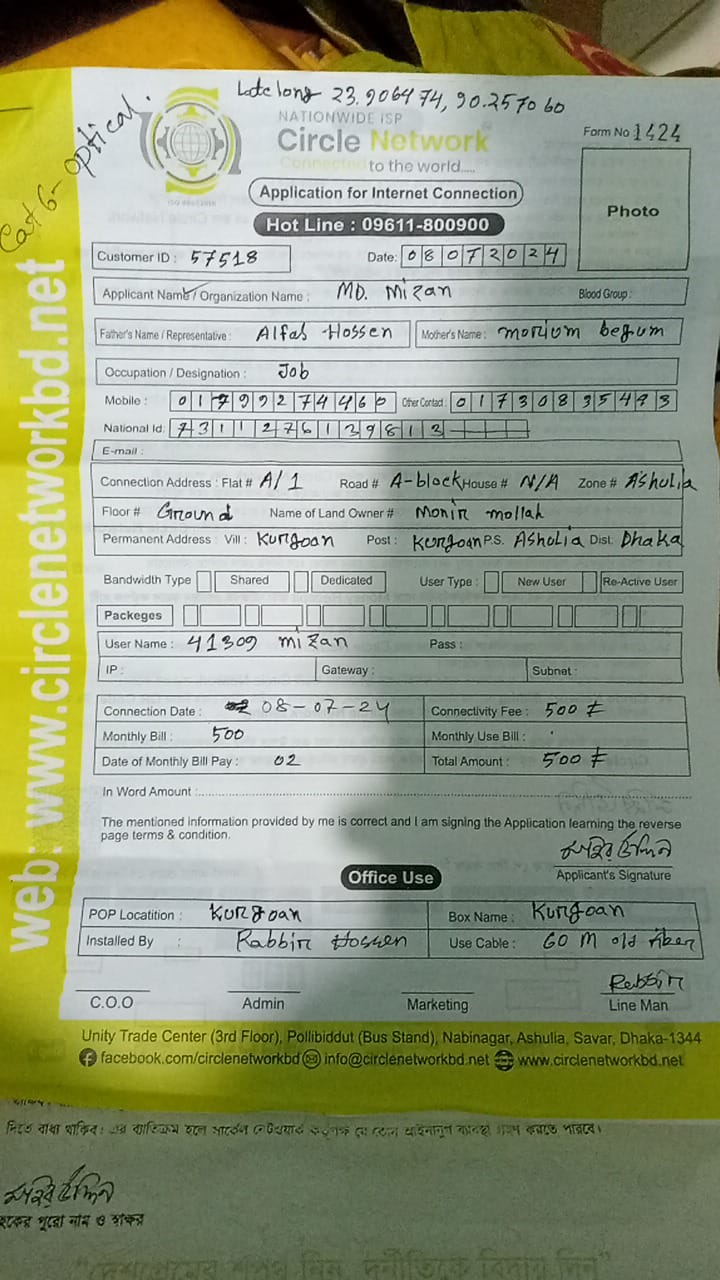 Late long 23.906474, 90.257060
Cat 6- optical.
NATIONWIDE ISP
Circle Network
Connected to the world.....
ISO 9001:2015
Form No 1424
Photo
Application for Internet Connection
Hot Line : 09611-800900
Customer ID : 57518 Date: 08072024
Applicant Name / Organization Name : MD. Mizan Blood Group :
Father's Name / Representative : Alfas Hossen Mother's Name : morium begum
Occupation / Designation : Job
Mobile : 01799274460 Other Contact : 01730835443
National Id: 7311276139813
E-mail :
Connection Address : Flat # A/1 Road # A-block House # N/A Zone # Ashulia
Floor # Ground Name of Land Owner # Monir mollah
Permanent Address : Vill : Kurgoan Post : Kurgoan P.S. Ashulia Dist. Dhaka
Bandwidth Type Shared Dedicated User Type : New User Re-Active User
Packeges
User Name : 41309 mizan Pass :
IP : Gateway : Subnet :
Connection Date : 08-07-24 Connectivity Fee : 500 ₹
Monthly Bill : 500 Monthly Use Bill :
Date of Monthly Bill Pay : 02 Total Amount : 500 ₹
In Word Amount :
The mentioned information provided by me is correct and I am signing the Application learning the reverse
page terms & condition.
Applicant's Signature
Office Use
POP Locatition : Kurgoan Box Name : Kurgoan
Installed By : Rabbir Hossen Use Cable : 60 M old fiber
Rabbir
C.O.O Admin Marketing Line Man
Unity Trade Center (3rd Floor), Pollibiddut (Bus Stand), Nabinagar, Ashulia, Savar, Dhaka-1344
facebook.com/circlenetworkbd info@circlenetworkbd.net www.circlenetworkbd.net
web: www.circlenetworkbd.net
দিতে বাধ্য থাকিব। এর ব্যতিক্রম হলে সার্কেল নেটওয়ার্ক কর্তৃপক্ষ যে কোন আইনানুগ ব্যবস্থা গ্রহণ করতে পারবে।
হকের পুরো নাম ও স্বাক্ষর
"দেশপ্রেমের শপথ নিন, দুর্নীতিকে বিদায় দিন"